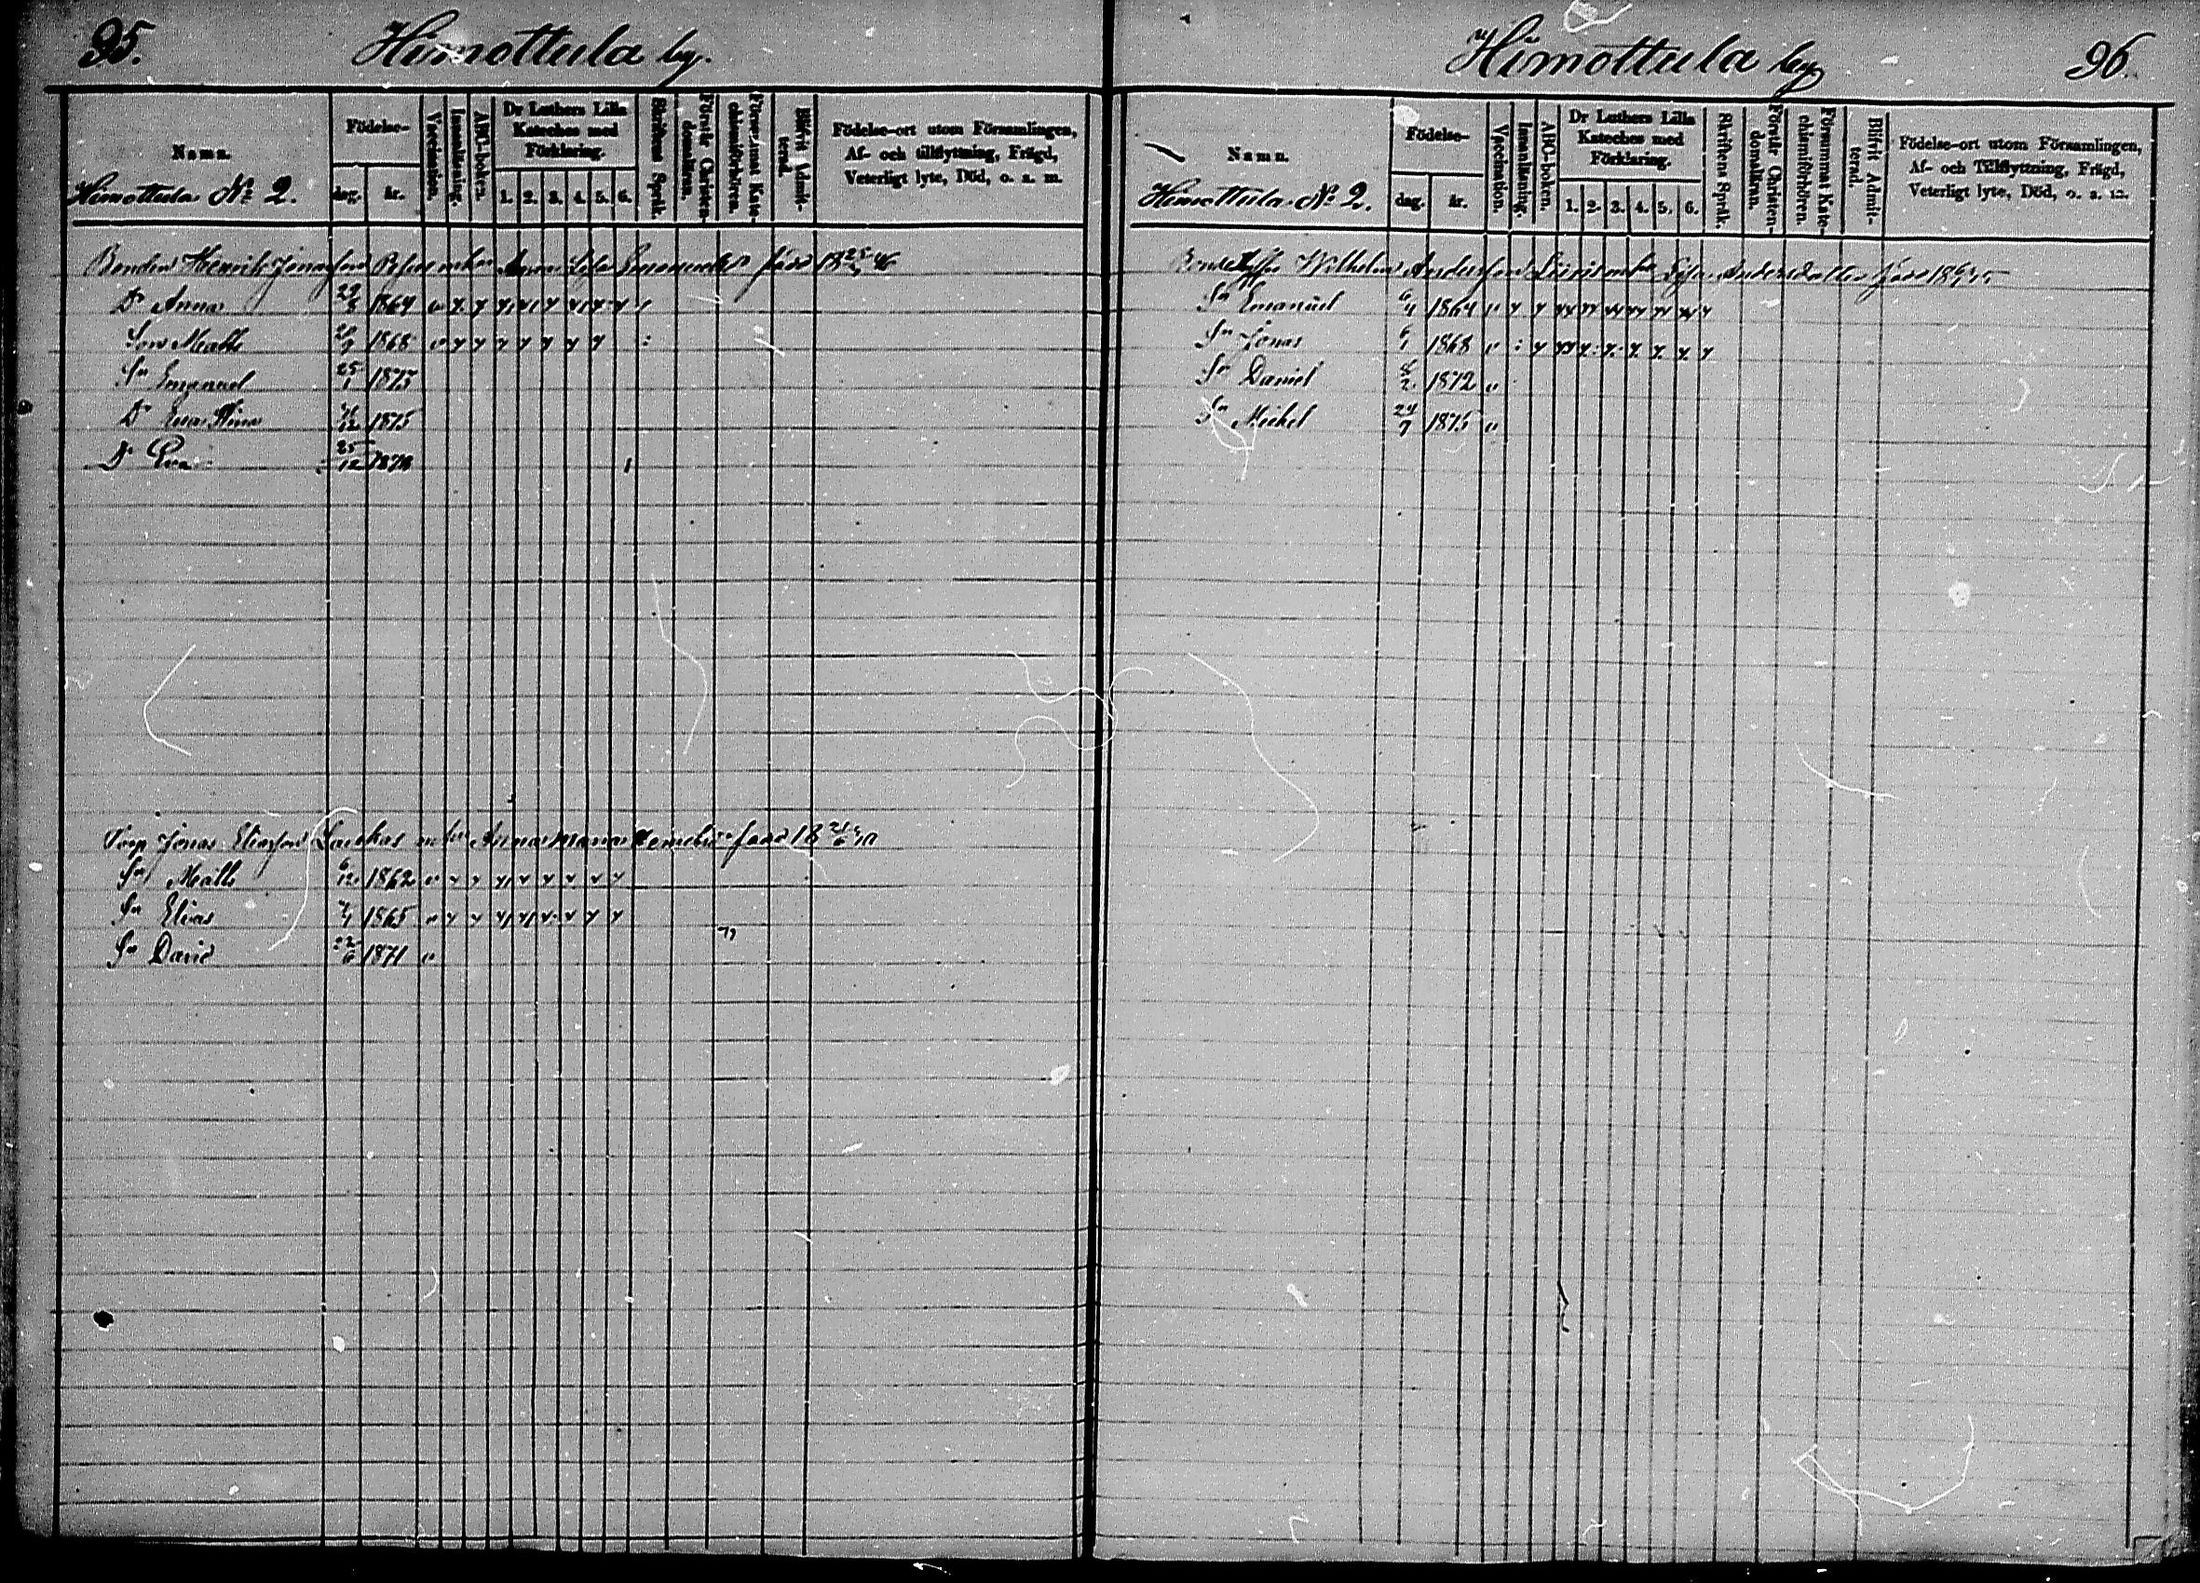 95.
Himottula by.
Namn.
Himottula № 2.
Födelse-
dag.
år.
Vaccination.
Innanläsning.
ABC-boken.
Dr Luthers Lilla
Kateches med
Förklaring.
1. 2. 3. 4. 5. 6.
Skriftens Språk.
Förstår Christen-
domsläran.
Försummat Kate-
chismiförhören.
Blifvit Admit-
terad.
Födelse-ort utom Församlingen,
Af- och tillflyttning, Frägd,
Veterligt lyte, Död, o. s. m.
Bonden Henrik Jonasson Anna Lisa född 18
Dr Anna 1864
Son Matts 1868
Sn Emanuel 25/1 1873
Dr Eva Stina 1875
Dr Eva 25/12 1878
Jonas Eliasson Laukas Anna Maria född 18
Sn Matts 6/12 1862
Sn Elias 1865
Sn David 22/6 1871
Himottula by
96.
Namn.
Himottula № 2.
Födelse-
dag.
år.
Vaccination.
Innanläsning.
ABC-boken.
Dr Luthers Lilla
Kateches med
Förklaring.
1. 2. 3. 4. 5. 6.
Skriftens Språk.
Förstår Christen-
domsläran.
Försummat Kate-
chismiförhören.
Blifvit Admit-
terad.
Födelse-ort utom Församlingen,
Af- och Tillflyttning, Frägd,
Veterligt lyte, Död, o. s. m.
Wilhelm Andersson Lisa Andersdotter född 18
Sn Emanuel 6/4 1864
Sn Jonas 6/1 1868
Sn Daniel 8/2 1872
Sn Michel 24/7 1875